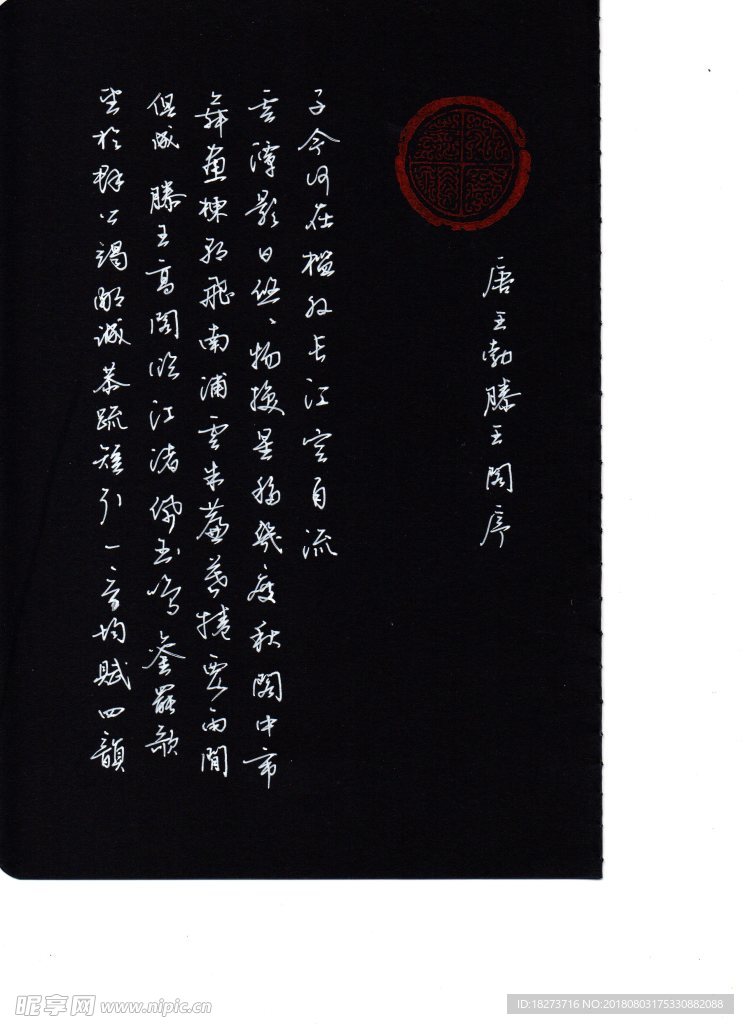 唐王勃滕王閣序
望於群公竭鄙誠恭疏短引一言均賦四韻
俱成 滕王高閣臨江渚佩玉鳴銮罷歌
舞畫棟朝飛南浦雲朱簾暮捲西雨閒
雲潭影日悠丶物換星移幾度秋閣中帝
子今何在檻外長江空自流
昵享网 www.nipic.cn
ID:18273716 NO:20180803175330882088